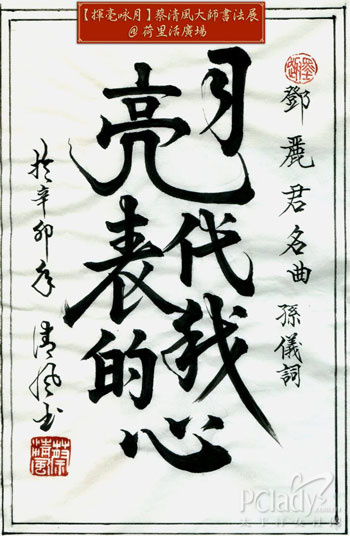 【揮毫咏月】蔡清風大師書法展
@ 荷里活廣場
鄧麗君名曲 孫儀詞
月亮代表我的心
於辛卯年 清風書
PClady